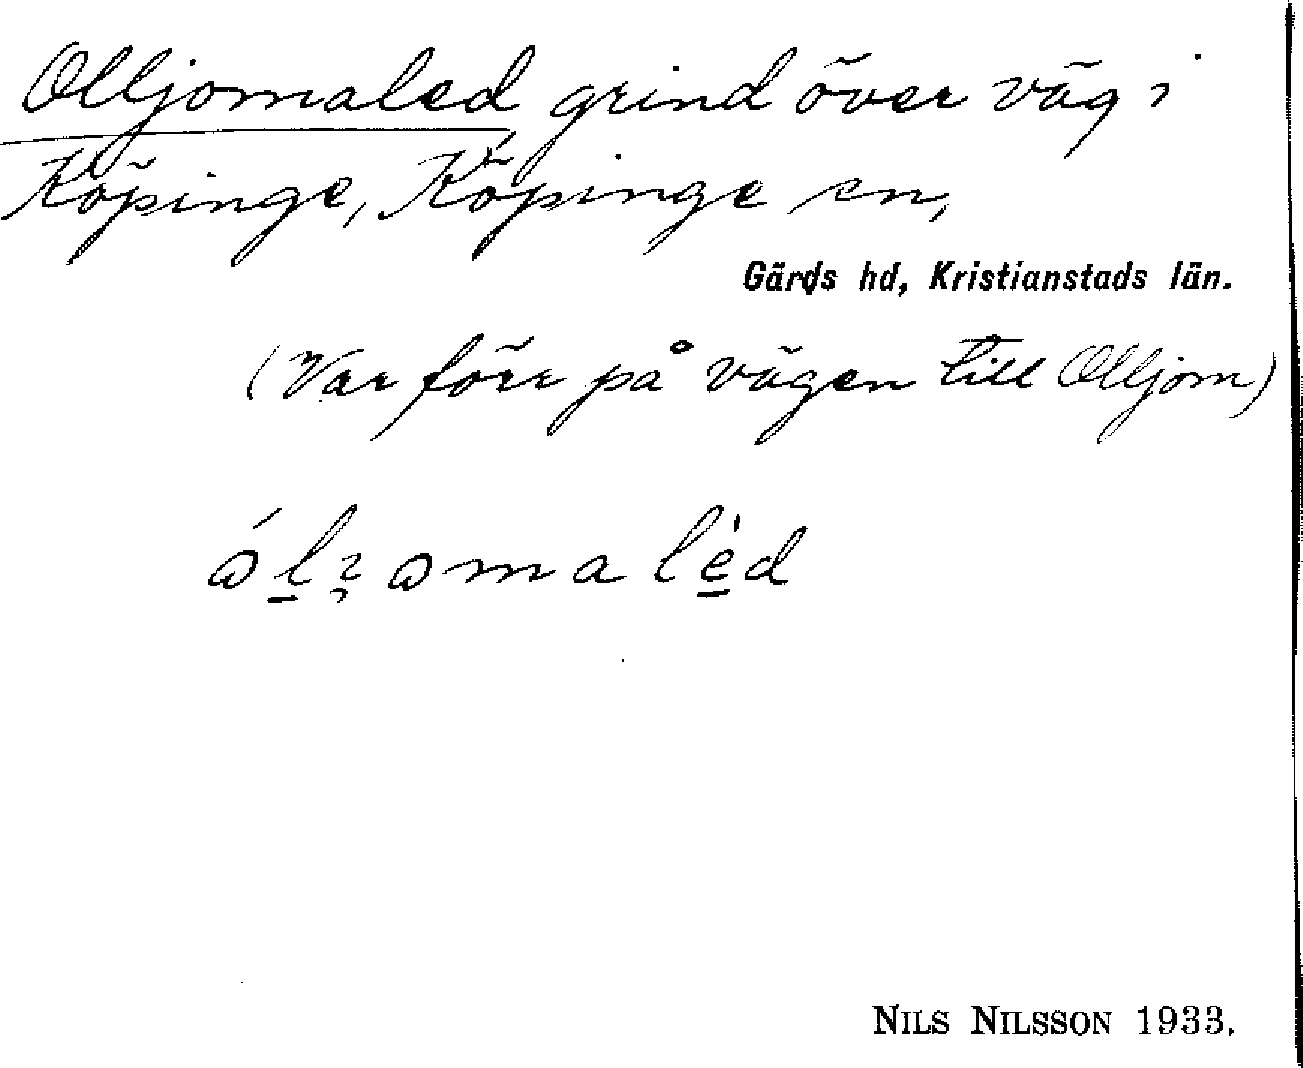 Olljomaled, grind över väg i
Köpinge, Köpinge sn,
Gärds hd, Kristianstads län.
(Var förr på vägen till Olljom)
NILS NILSSON 1933.